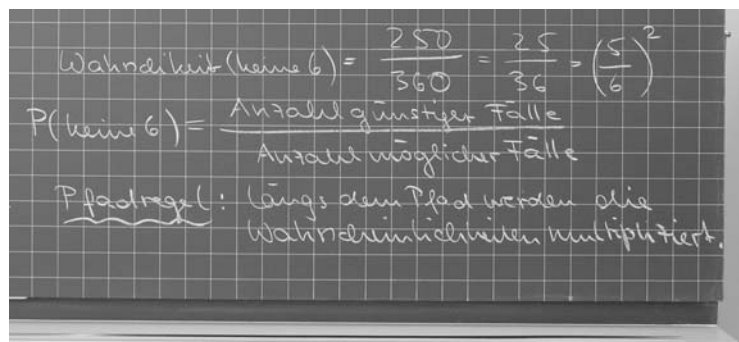 Wahrscheikeit (keine 6) = 250/360 = 25/36 = (5/6)²
P(keine 6) = Anzahl günstiger Fälle / Anzahl möglicher Fälle
Pfadregel: Längs dem Pfad werden die
Wahrscheinlichkeiten multipliziert.